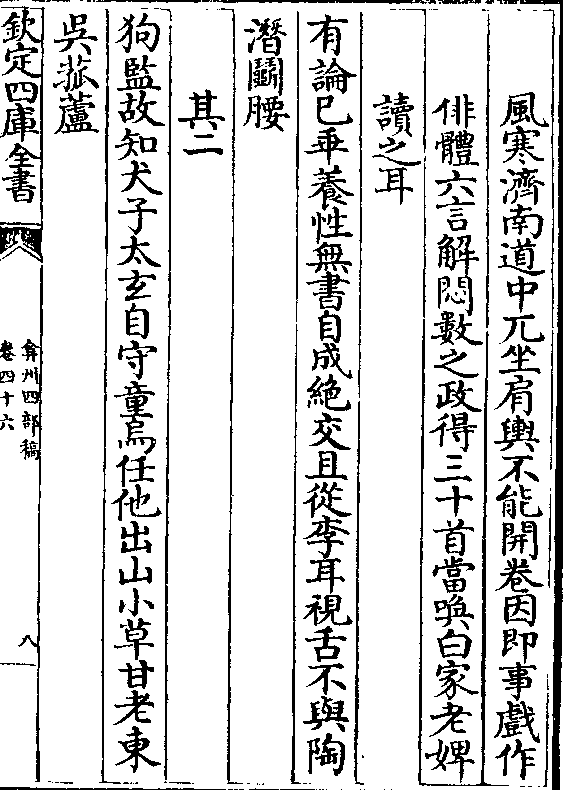 風寒濟南道中兀坐肩輿不能開卷因即事戲作
俳體六言解悶數之政得三十首當喚白家老婢
讀之耳
有論已乖養性無書自成絶交且從李耳視舌不與陶
潛鬭腰
其二
狗監故知犬子太玄自守童烏任他出山小草甘老東
吳菰蘆
欽定四庫全書
弇州四部稿
卷四十六
八